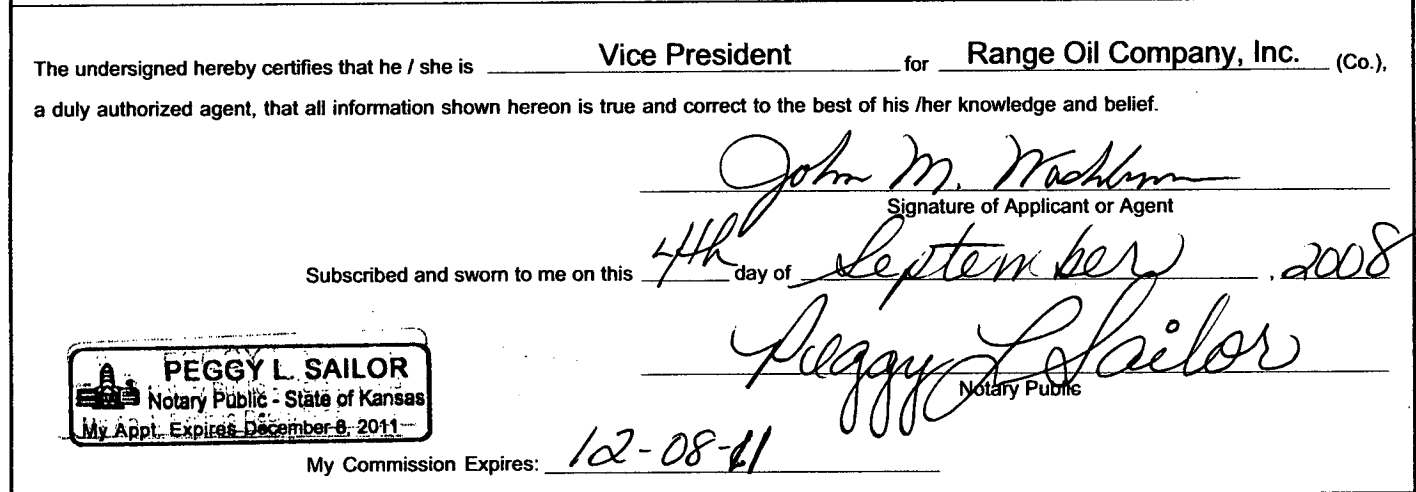 The undersigned hereby certifies that he / she is Vice President for Range Oil Company, Inc. (Co.),
a duly authorized agent, that all information shown hereon is true and correct to the best of his /her knowledge and belief.
John M. Washburn
Signature of Applicant or Agent
Subscribed and sworn to me on this 4th day of September , 2008
Peggy L Sailor
Notary Public
PEGGY L. SAILOR
Notary Public - State of Kansas
My Appt. Expires December 8, 2011
My Commission Expires: 12-08-11